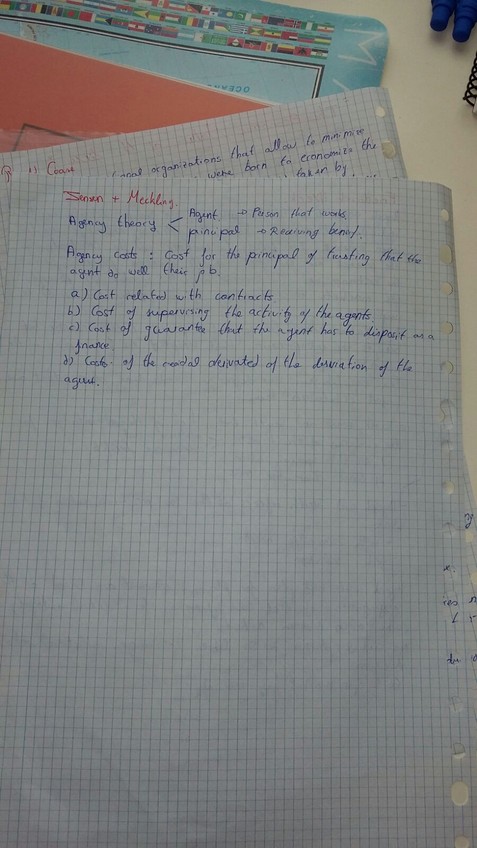 OCEAN
1) Coase
organizations that allow to minimize
were born to economize the
taken by ...
Jensen + Meckling.
Agency theory < Agent → Person that works
principal → Receiving benef.
Agency costs : Cost for the principal of trusting that the
agent do well their job.
a) Cost related with contracts
b) Cost of supervising the activity of the agents
c) Cost of guarantee that the agent has to disposit as a
finance.
d) Costs of the derivated of the desviation of the
agent.